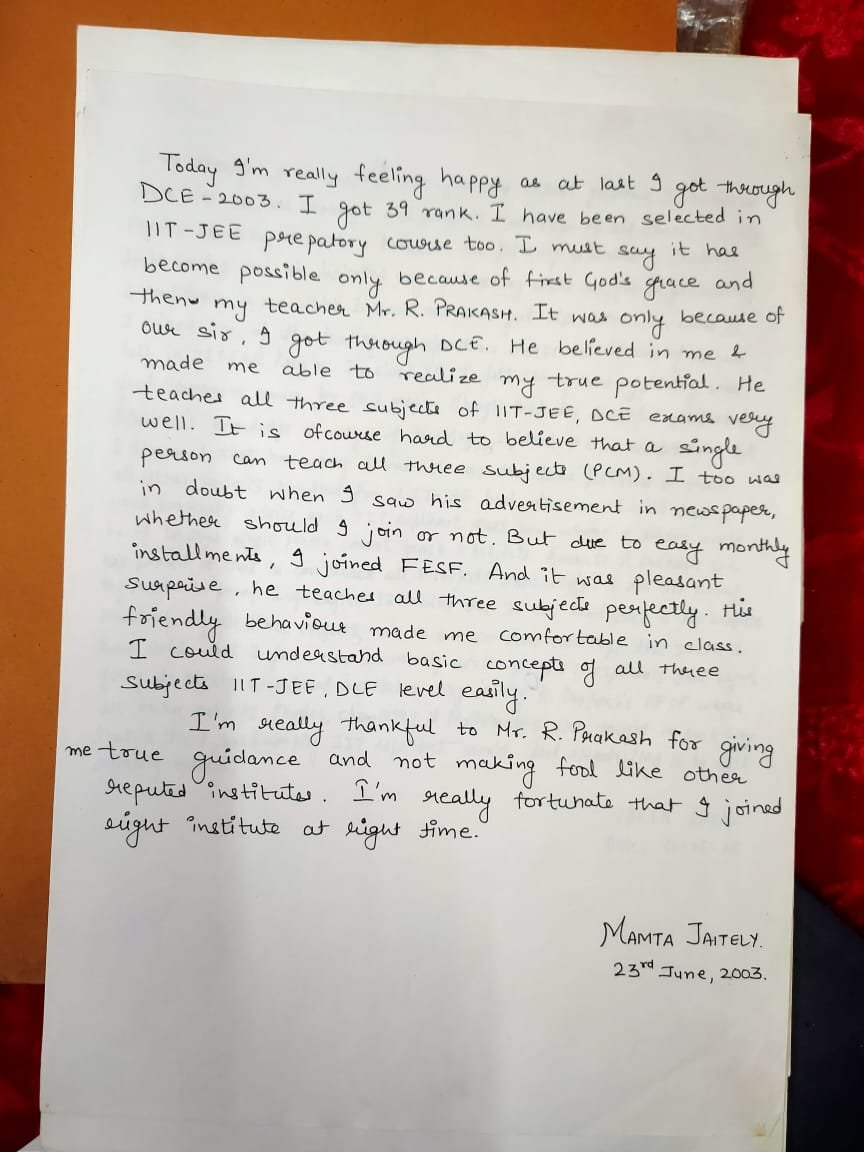 Today I'm really feeling happy as at last I got through
DCE - 2003. I got 39 rank. I have been selected in
IIT-JEE prepatory course too. I must say it has
become possible only because of first God's grace and
then my teacher Mr. R. PRAKASH. It was only because of
our sir, I got through DCE. He believed in me &
made me able to realize my true potential. He
teaches all three subjects of IIT-JEE, DCE exams very
well. It is ofcourse hard to believe that a single
person can teach all three subjects (PCM). I too was
in doubt when I saw his advertisement in newspaper,
whether should I join or not. But due to easy monthly
installments, I joined FESF. And it was pleasant
surprise, he teaches all three subjects perfectly. His
friendly behaviour made me comfortable in class.
I could understand basic concepts of all three
subjects IIT-JEE, DCE level easily.
I'm really thankful to Mr. R. Prakash for giving
me true guidance and not making fool like other
reputed institutes. I'm really fortunate that I joined
right institute at right time.
MAMTA JAITELY.
23rd June, 2003.